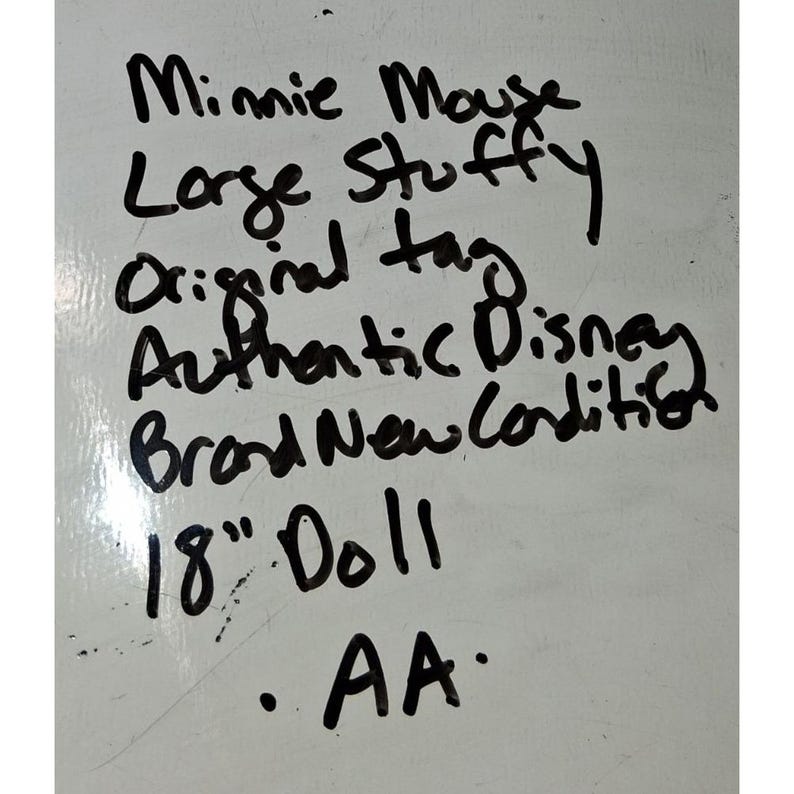 Minnie Mouse
Large Stuffy
Original tag
Authentic Disney
Brand New Condition
18" Doll
. AA .